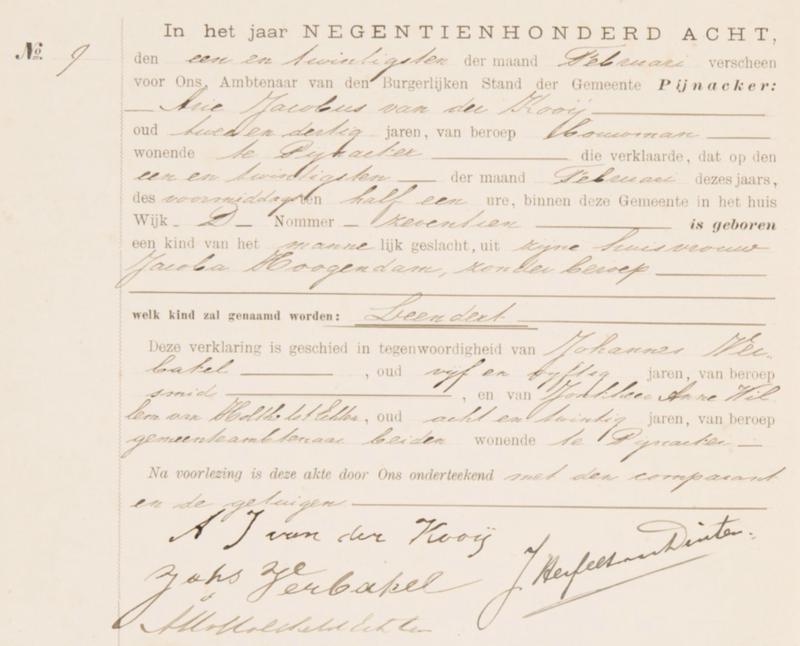 In het jaar NEGENTIENHONDERD ACHT,
No. 9
den een en twintigsten der maand Februari verscheen
voor Ons, Ambtenaar van den Burgerlijken Stand der Gemeente Pijnacker:
Arie Jacobus van der Kooij
oud twee en dertig jaren, van beroep bouwman
wonende te Pijnacker die verklaarde, dat op den
een en twintigsten der maand Februari dezes jaars,
des voormiddags ten half een ure, binnen deze Gemeente in het huis
Wijk D Nommer zeventien is geboren
een kind van het mannelijk geslacht, uit zijne huisvrouw
Jacoba Hoogendam, zonder beroep
welk kind zal genaamd worden: Leendert
Deze verklaring is geschied in tegenwoordigheid van Johannes Ver-
bakel, oud vijf en vijftig jaren, van beroep
smid, en van Jonkheer Anne Wil
lem van Holthe tot Echten, oud acht en twintig jaren, van beroep
gemeenteambtenaar beiden wonende te Pijnacker
Na voorlezing is deze akte door Ons onderteekend met den comparant
en de getuigen
A J van der Kooij
Johs Verbakel